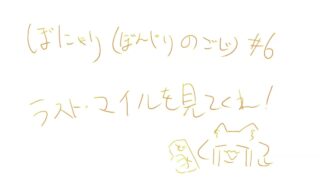 ぼにゃり(ぼんじりのごじ)#6
ラスト・マイルを見てくれ!